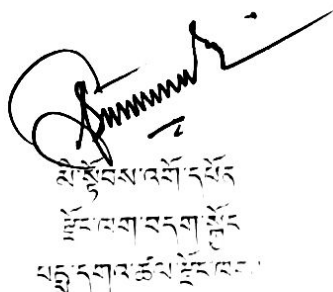 མི་སྟོབས་འགོ་དཔོན
རྫོང་ཁག་བདག་སྐྱོང
པདྨ་དགའ་ཚལ་རྫོང་ཁག།